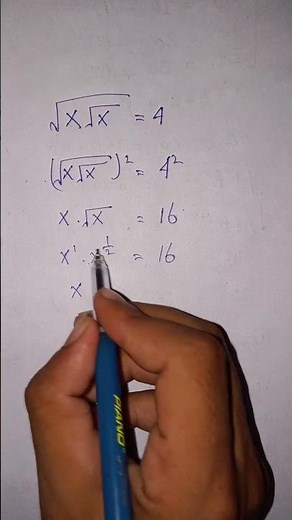 √(x√x) = 4
(√(x√x))² = 4²
x · √x = 16
x¹ · x^½ = 16
x
PIANO